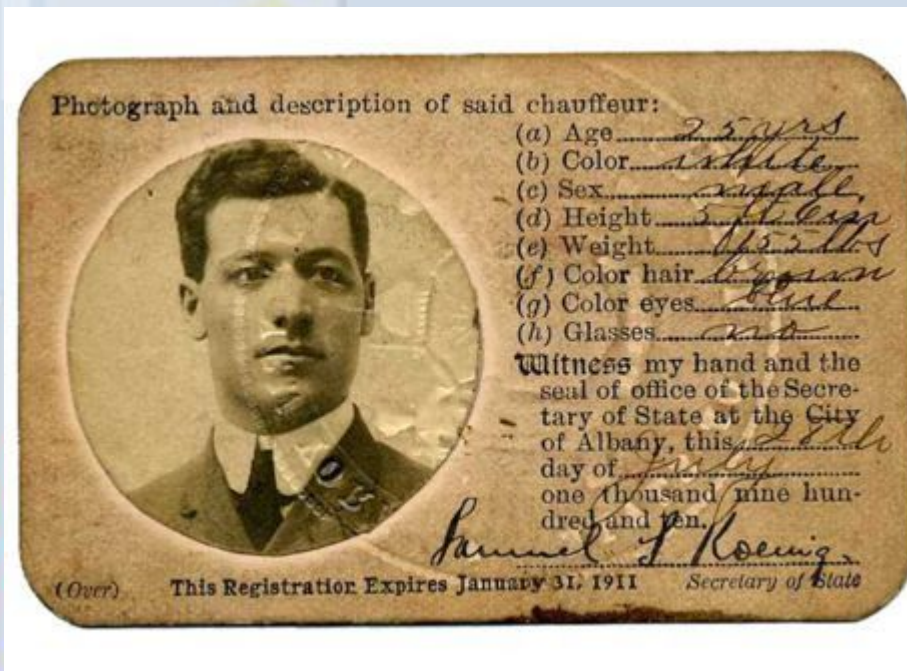 Photograph and description of said chauffeur:
(a) Age 25 yrs
(b) Color white
(c) Sex male
(d) Height 5 ft
(e) Weight 155 lbs
(f) Color hair brown
(g) Color eyes blue
(h) Glasses no
Witness my hand and the
seal of office of the Secre-
tary of State at the City
of Albany, this
day of July
one thousand nine hun-
dred and ten.
Samuel S Koenig
(Over) This Registration Expires January 31, 1911 Secretary of State